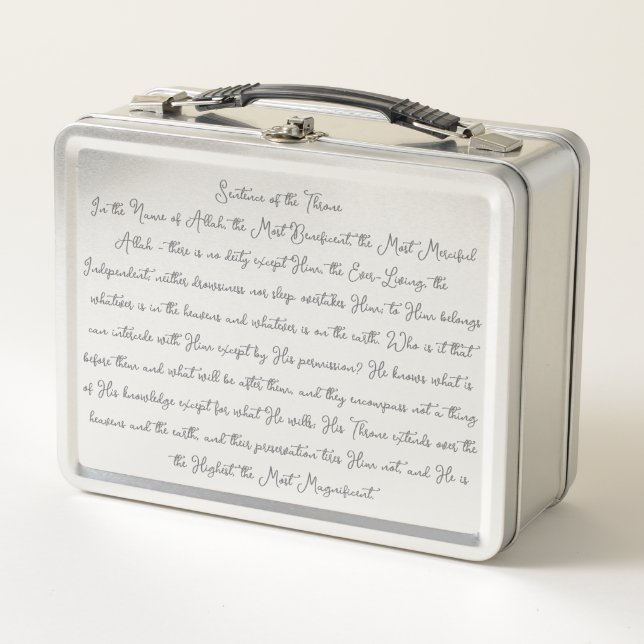 Sentence of the Throne
In the Name of Allah, the Most Beneficent, the Most Merciful
Allah - there is no deity except Him, the Ever-Living, the
Independent; neither drowsiness nor sleep overtakes Him; to Him belongs
whatever is in the heavens and whatever is on the earth. Who is it that
can intercede with Him except by His permission? He knows what is
before them and what will be after them, and they encompass not a thing
of His knowledge except for what He wills; His Throne extends over the
heavens and the earth, and their preservation tires Him not, and He is
the Highest, the Most Magnificent.